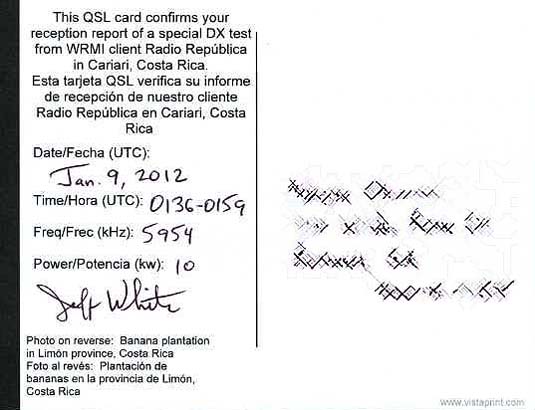 This QSL card confirms your
reception report of a special DX test
from WRMI client Radio República
in Cariari, Costa Rica.
Esta tarjeta QSL verifica su informe
de recepción de nuestro cliente
Radio República en Cariari, Costa
Rica
Date/Fecha (UTC):
Jan. 9, 2012
Time/Hora (UTC): 0136-0159
Freq/Frec (kHz): 5954
Power/Potencia (kw): 10
Jeff White
Photo on reverse: Banana plantation
in Limón province, Costa Rica
Foto al revés: Plantación de
bananas en la provincia de Limón,
Costa Rica
www.vistaprint.com